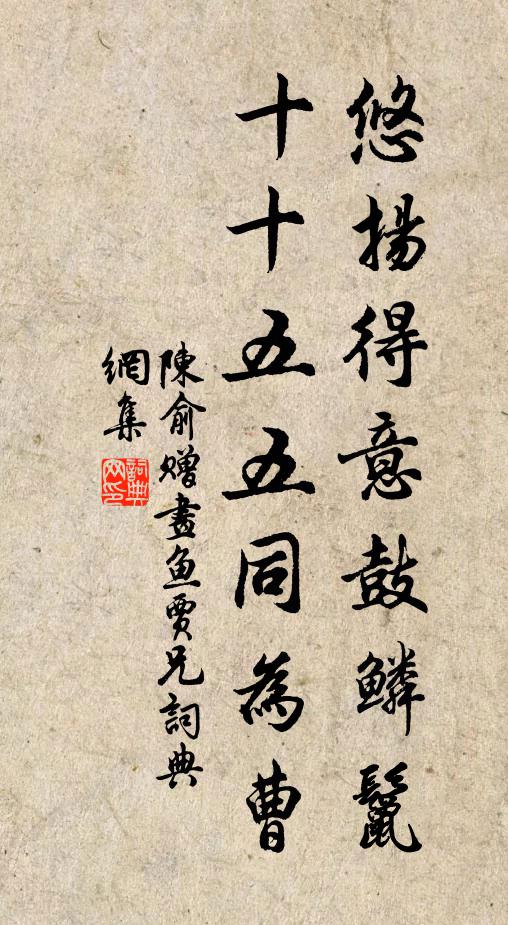 悠揚得意鼓鱗鬣
十十五五同為曹
陳俞贈畫魚賈兄詞典
網集
詞典網印